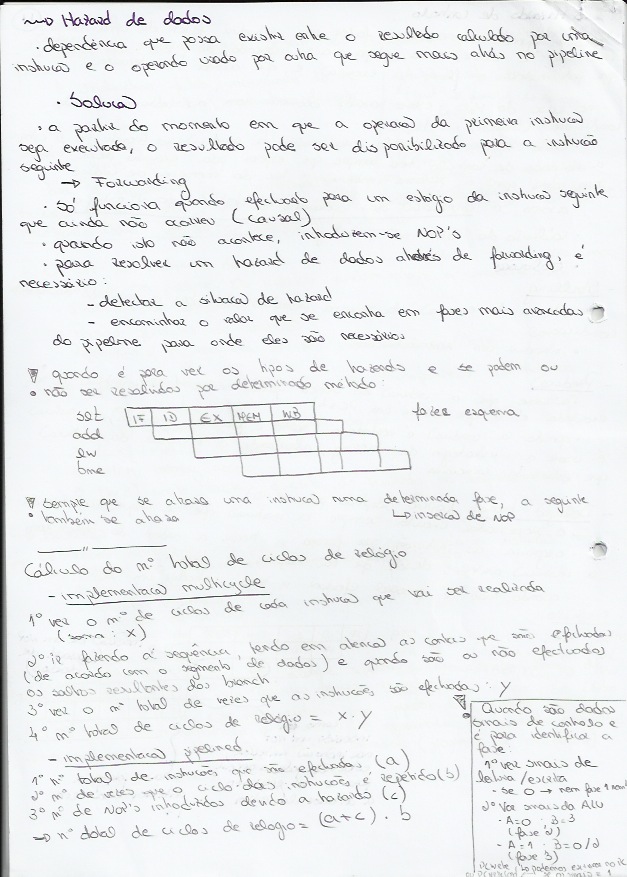 ~→ Hazard de dados
· dependência que possa existir entre o resultado calculado por uma
instrucao e o operando usado por outra que segue mais atrás no pipeline
· Solucao
· a partir do momento em que a operacao da primeira instrucao
seja executada, o resultado pode ser disponibilizado para a instrucão
seguinte
→ Forwarding
· só funciona quando efectuado para um estágio da instrucao seguinte
que ainda não ocorreu (causal)
· quando isto não acontece, introduzem-se NOP's
· para resolver um hazard de dados através de forwarding, é
necessário:
- detectar a situacao de hazard
- encaminhar o valor que se encontra em fases mais avancadas
do pipeline para onde eles são necessários
quando é para ver os tipos de hazards e se podem ou
não ser resolvidos por determinado método:
slt IF ID EX MEM WB fazer esquema
add
lw
bne
sempre que se atrasa uma instrucao numa determinada fase, a seguinte
também se atrasa ↳ insercao de NOP
___"___
Cálculo do nº total de ciclos de relógio
- implementacao multicycle
1º ver o nº de ciclos de cada instrucao que vai ser realizada
(soma: x)
2º ir fazendo a sequência, tendo em atencao as contas que são efectuadas
(de acordo com o segmento de dados) e quando são ou não efectuados
os saltos resultantes dos branch
3º ver o nº total de vezes que as instrucões são efectuadas: y
4º nº total de ciclos de relógio = x·y
- implementacao pipelined
1º nº total de instrucões que são efectuadas (a)
2º nº de vezes que o ciclo das instrucões é repetido (b)
3º nº de NOP's introduzidos devido a hazards (c)
→ nº total de ciclos de relogio = (a+c)·b
Quando são dados
sinais de controlo e
é para identificar a
fase:
1º ver sinais de
leitura/escrita
- se 0 → nem fase 1 nem
2º Ver sinais da ALU
· A=0 ; B=3
(fase 2)
- A=1 ; B=0/2
(fase 3)